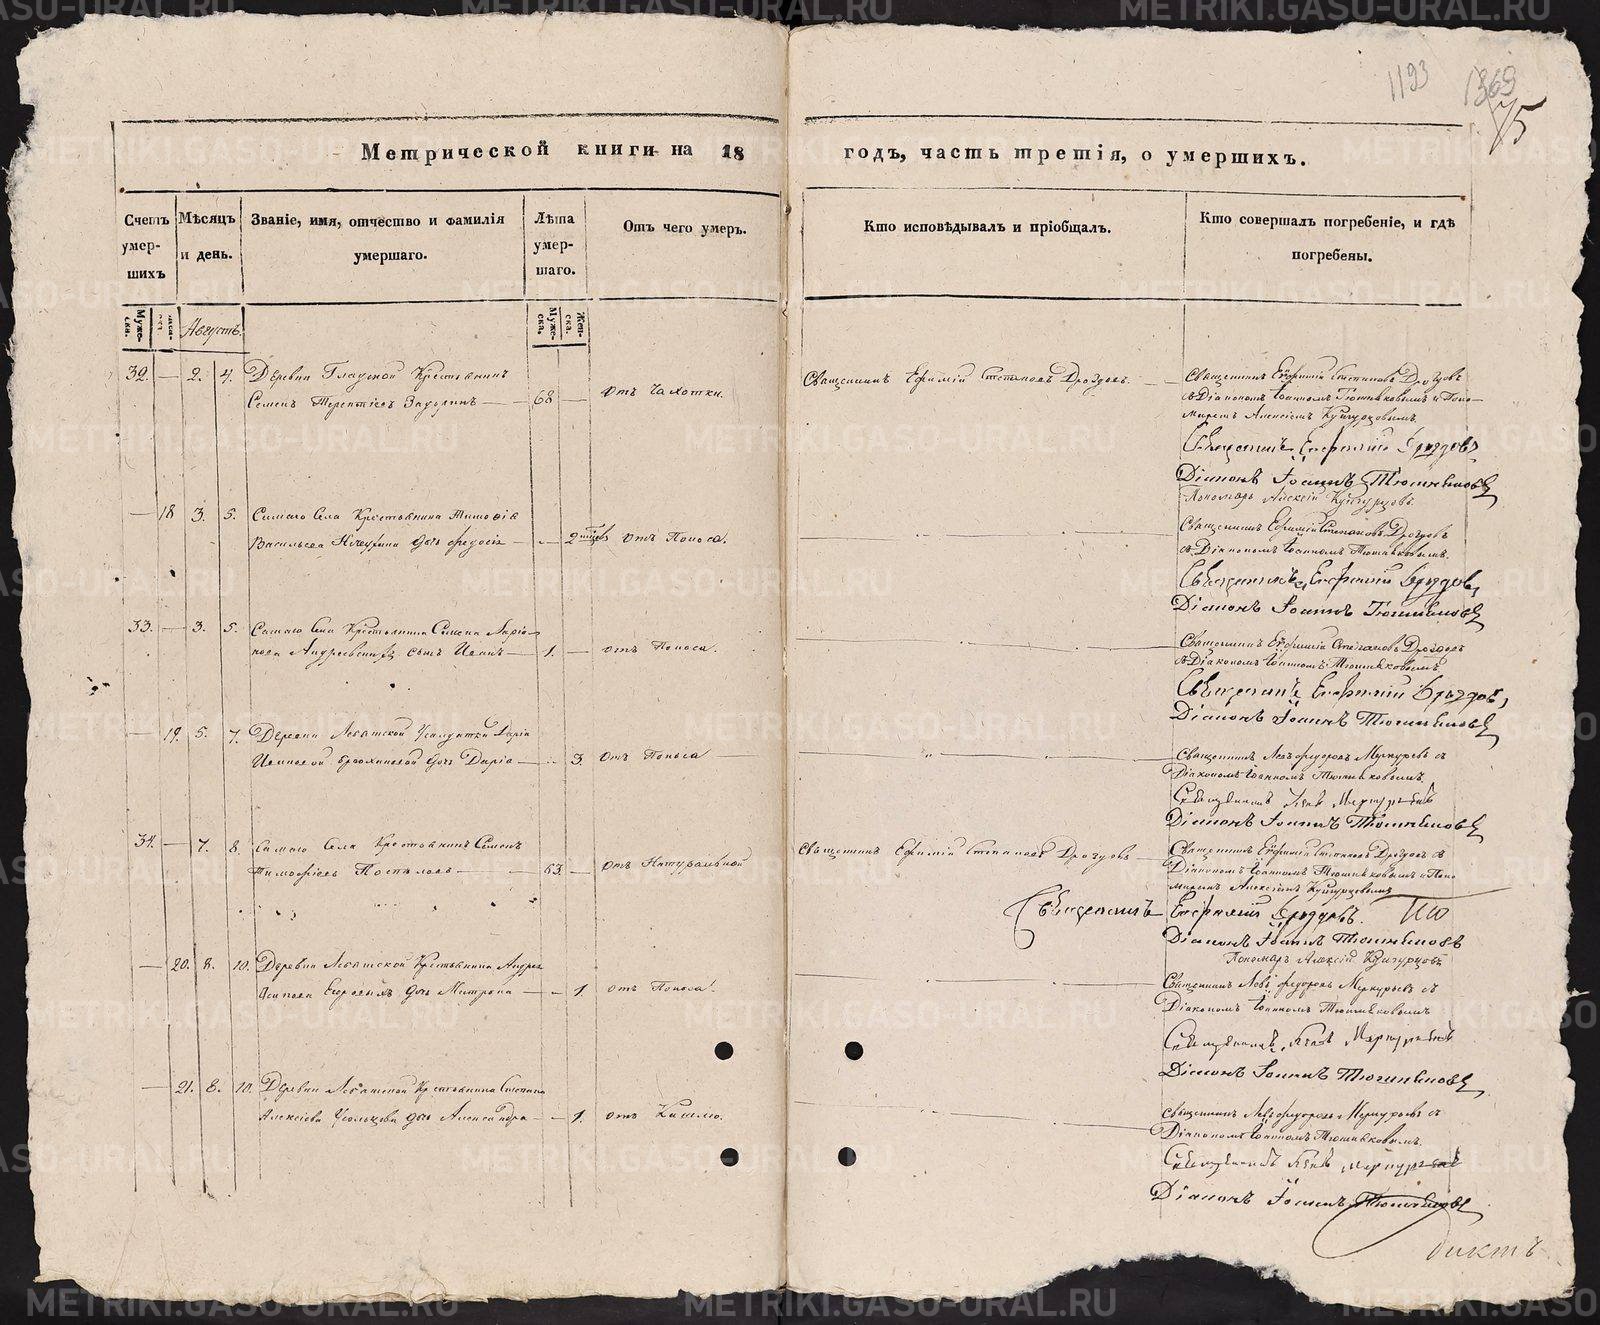 1193
1369
75
Метрической книги на 18 годъ, часть третія, о умершихъ.
Счетъ умер-шихъ
Мѣсяцъ и день.
Званіе, имя, отчество и фамилія умершаго.
Лѣта умер-шаго.
Отъ чего умеръ.
Кто исповѣдывалъ и пріобщалъ.
Кто совершалъ погребеніе, и гдѣ погребены.
Муже-ска.
Жен-ска.
Августъ.
Муже-ска.
Жен-ска.
32. — 2. 4. Деревни Крестьянинъ
Семенъ Терентіевъ — 68 — отъ Чахотки.
Священникъ Ефимій Стефановъ Дроздовъ.
Священникъ Ефимій Стефановъ Дроздовъ
съ Діакономъ Іоанномъ Тюшняковымъ и Поно-
маремъ Алексіемъ Кунгурцовымъ
Священникъ Евфимій Дроздовъ
Діаконъ Іоаннъ Тюшняковъ
Пономарь Алексій Кунгурцовъ
— 18 3. 5. Самаго Села Крестьянина Тимофія
Васильева дочь Федосія — 2 отъ Поноса.
Священникъ Ефимій Стефановъ Дроздовъ
съ Діакономъ Іоанномъ Тюшняковымъ.
Священникъ Евфимій Дроздовъ,
Діаконъ Іоаннъ Тюшняковъ
33. — 3. 5. Самаго Села Крестьянина Семена Ларіо-
нова сынъ Иванъ — 1. — отъ Поноса.
Священникъ Ефимій Стефановъ Дроздовъ
съ Діакономъ Іоанномъ Тюшняковымъ
Священникъ Евфимій Дроздовъ,
Діаконъ Іоаннъ Тюшняковъ
— 19. 5. 7. Деревни Дарія
дочь Дарія — 3. отъ Поноса
Священникъ Левъ Федоровъ Меркурьевъ съ
Діакономъ Іоанномъ Тюшняковымъ.
Священникъ Левъ Меркурьевъ
Діаконъ Іоаннъ Тюшняковъ
34. — 7. 8. Самаго Села Крестьянинъ Семенъ
Тимофіевъ Поспѣловъ — 63. — отъ Натуральной
Священникъ Ефимій Стефановъ Дроздовъ
Священникъ Ефимій Стефановъ Дроздовъ съ
Діакономъ Іоанномъ Тюшняковымъ и Поно-
маремъ Алексіемъ Кунгурцовымъ
Священникъ Евфимій Дроздовъ.
Діаконъ Іоаннъ Тюшняковъ
Пономарь Алексій Кунгурцовъ
— 20. 8. 10. Деревни Крестьянина Андрея
Осипова дочь Матрона — 1. отъ Поноса.
Священникъ Левъ Федоровъ Меркурьевъ съ
Діакономъ Іоанномъ Тюшняковымъ
Священникъ Левъ Меркурьевъ
Діаконъ Іоаннъ Тюшняковъ
— 21. 8. 10. Деревни Крестьянина Степана
Алексіева Усольцева дочь Александра — 1. отъ Кашлю.
Священникъ Левъ Федоровъ Меркурьевъ съ
Діакономъ Іоанномъ Тюшняковымъ.
Священникъ Левъ Меркурьевъ
Діаконъ Іоаннъ Тюшняковъ
METRIKI.GASO-URAL.RU